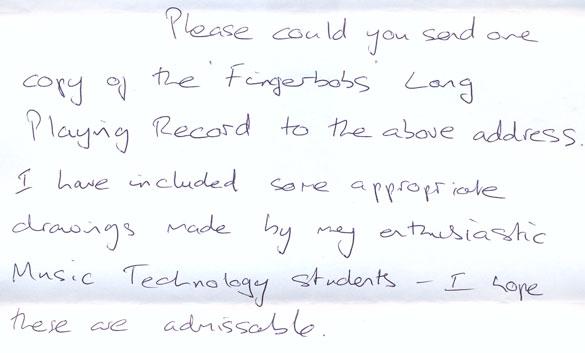 Please could you send one
copy of the 'Fingerbobs' Long
Playing Record to the above address.
I have included some appropriate
drawings made by my enthusiastic
Music Technology students – I hope
these are admissable.